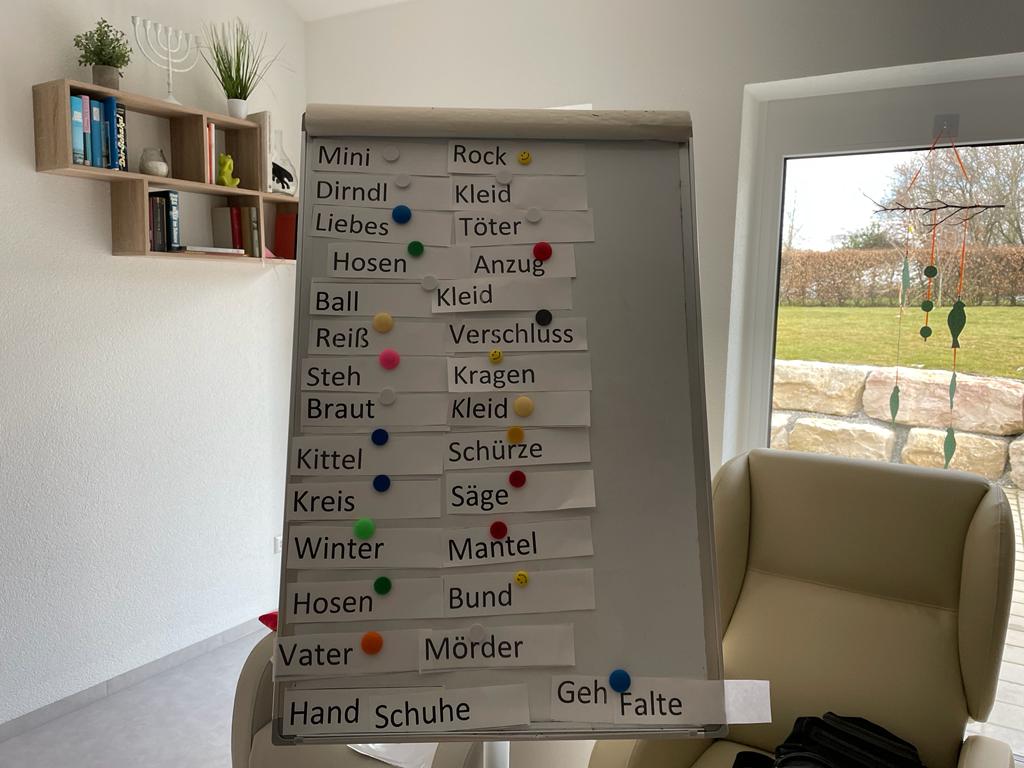 Mini Rock
Dirndl Kleid
Liebes Töter
Hosen Anzug
Ball Kleid
Reiß Verschluss
Steh Kragen
Braut Kleid
Kittel Schürze
Kreis Säge
Winter Mantel
Hosen Bund
Vater Mörder
Hand Schuhe Geh Falte